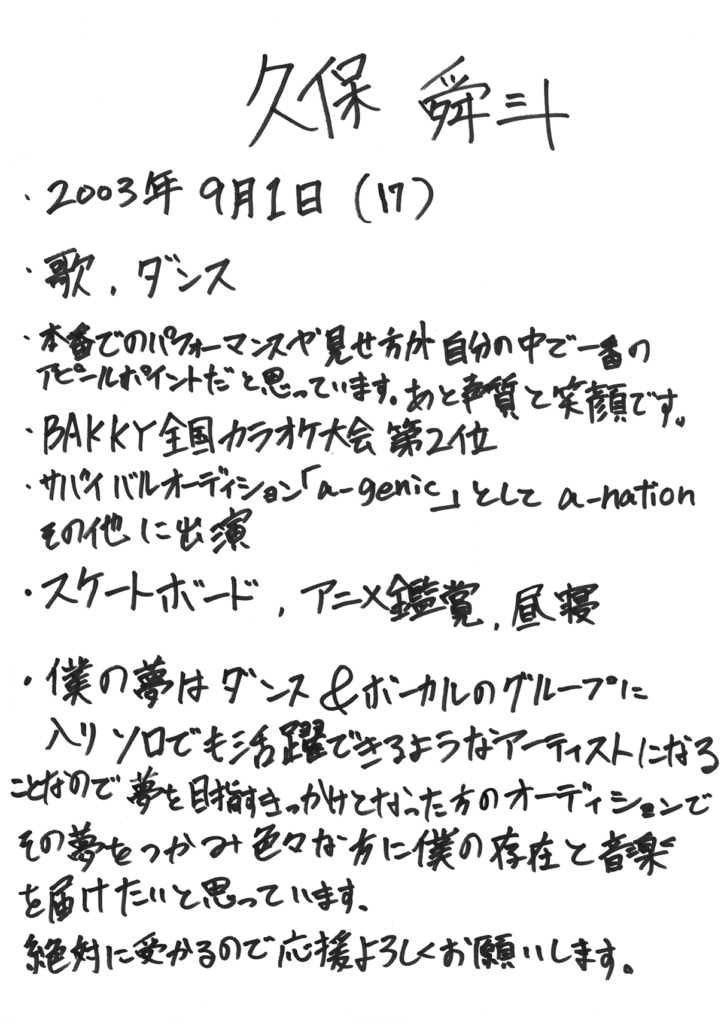 久保 舜斗
・2003年 9月1日 (17)
・歌, ダンス
・本番でのパフォーマンスや見せ方が自分の中で一番の
アピールポイントだと思っています。あと声質と笑顔です。
・BAKKY全国カラオケ大会 第2位
・サバイバルオーディション「a-genic」として a-nation
その他に出演
・スケートボード, アニメ鑑賞, 昼寝
・僕の夢はダンス&ボーカルのグループに
入りソロでも活躍できるようなアーティストになる
ことなので夢を目指すきっかけとなった方のオーディションで
その夢をつかみ色々な方に僕の存在と音楽
を届けたいと思っています.
絶対に受かるので応援よろしくお願いします。